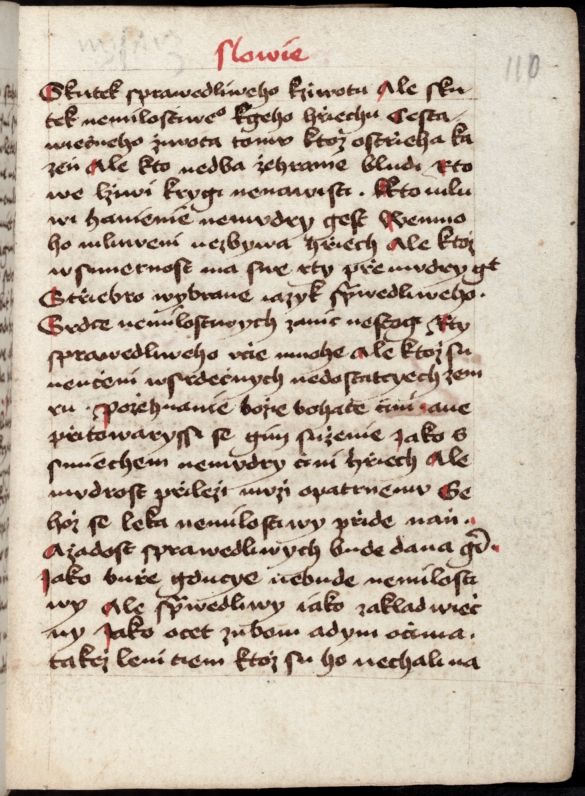 slowie
110
Skutek sprawedliweho kziwotu Ale sku
tek nemilostiweo kgeho hřiechu Cesta
wiečneho života tomu ktož ostřieha ka
zeň Ale kto nedba žehranie bludi Rto
we lziwi krygi nenawist. Kto mlu
wi hanienie nemudry gest Wemno
ho mluweni nezbywa hřiech Ale ktož
wsmiernost ma swe rty přemudry gt
Střiebro wybrane iazyk sprwedliweho.
Srdce nemilostiwych zanic nestogi Rty
sprawedliweho učie mnohe Ale ktož su
neučeni wsrdečnych nedostatcyech zem
ru. Požehnanie božie bohate čini aue
přitowaryssi se gim suženie Jako s
smiechem nemudry čini hřiech Ale
mudrost přileži muži opatrnemu Ge
hož se leka nemilostiwy přide naň.
Azadost sprawedliwych bude dana gim.
Jako buře gducye nebude nemilosti
wy Ale sprwedliwy iako zaklad wieč
ny Jako ocet zubom adym očima.
takež leni tiem ktož su ho nechali na